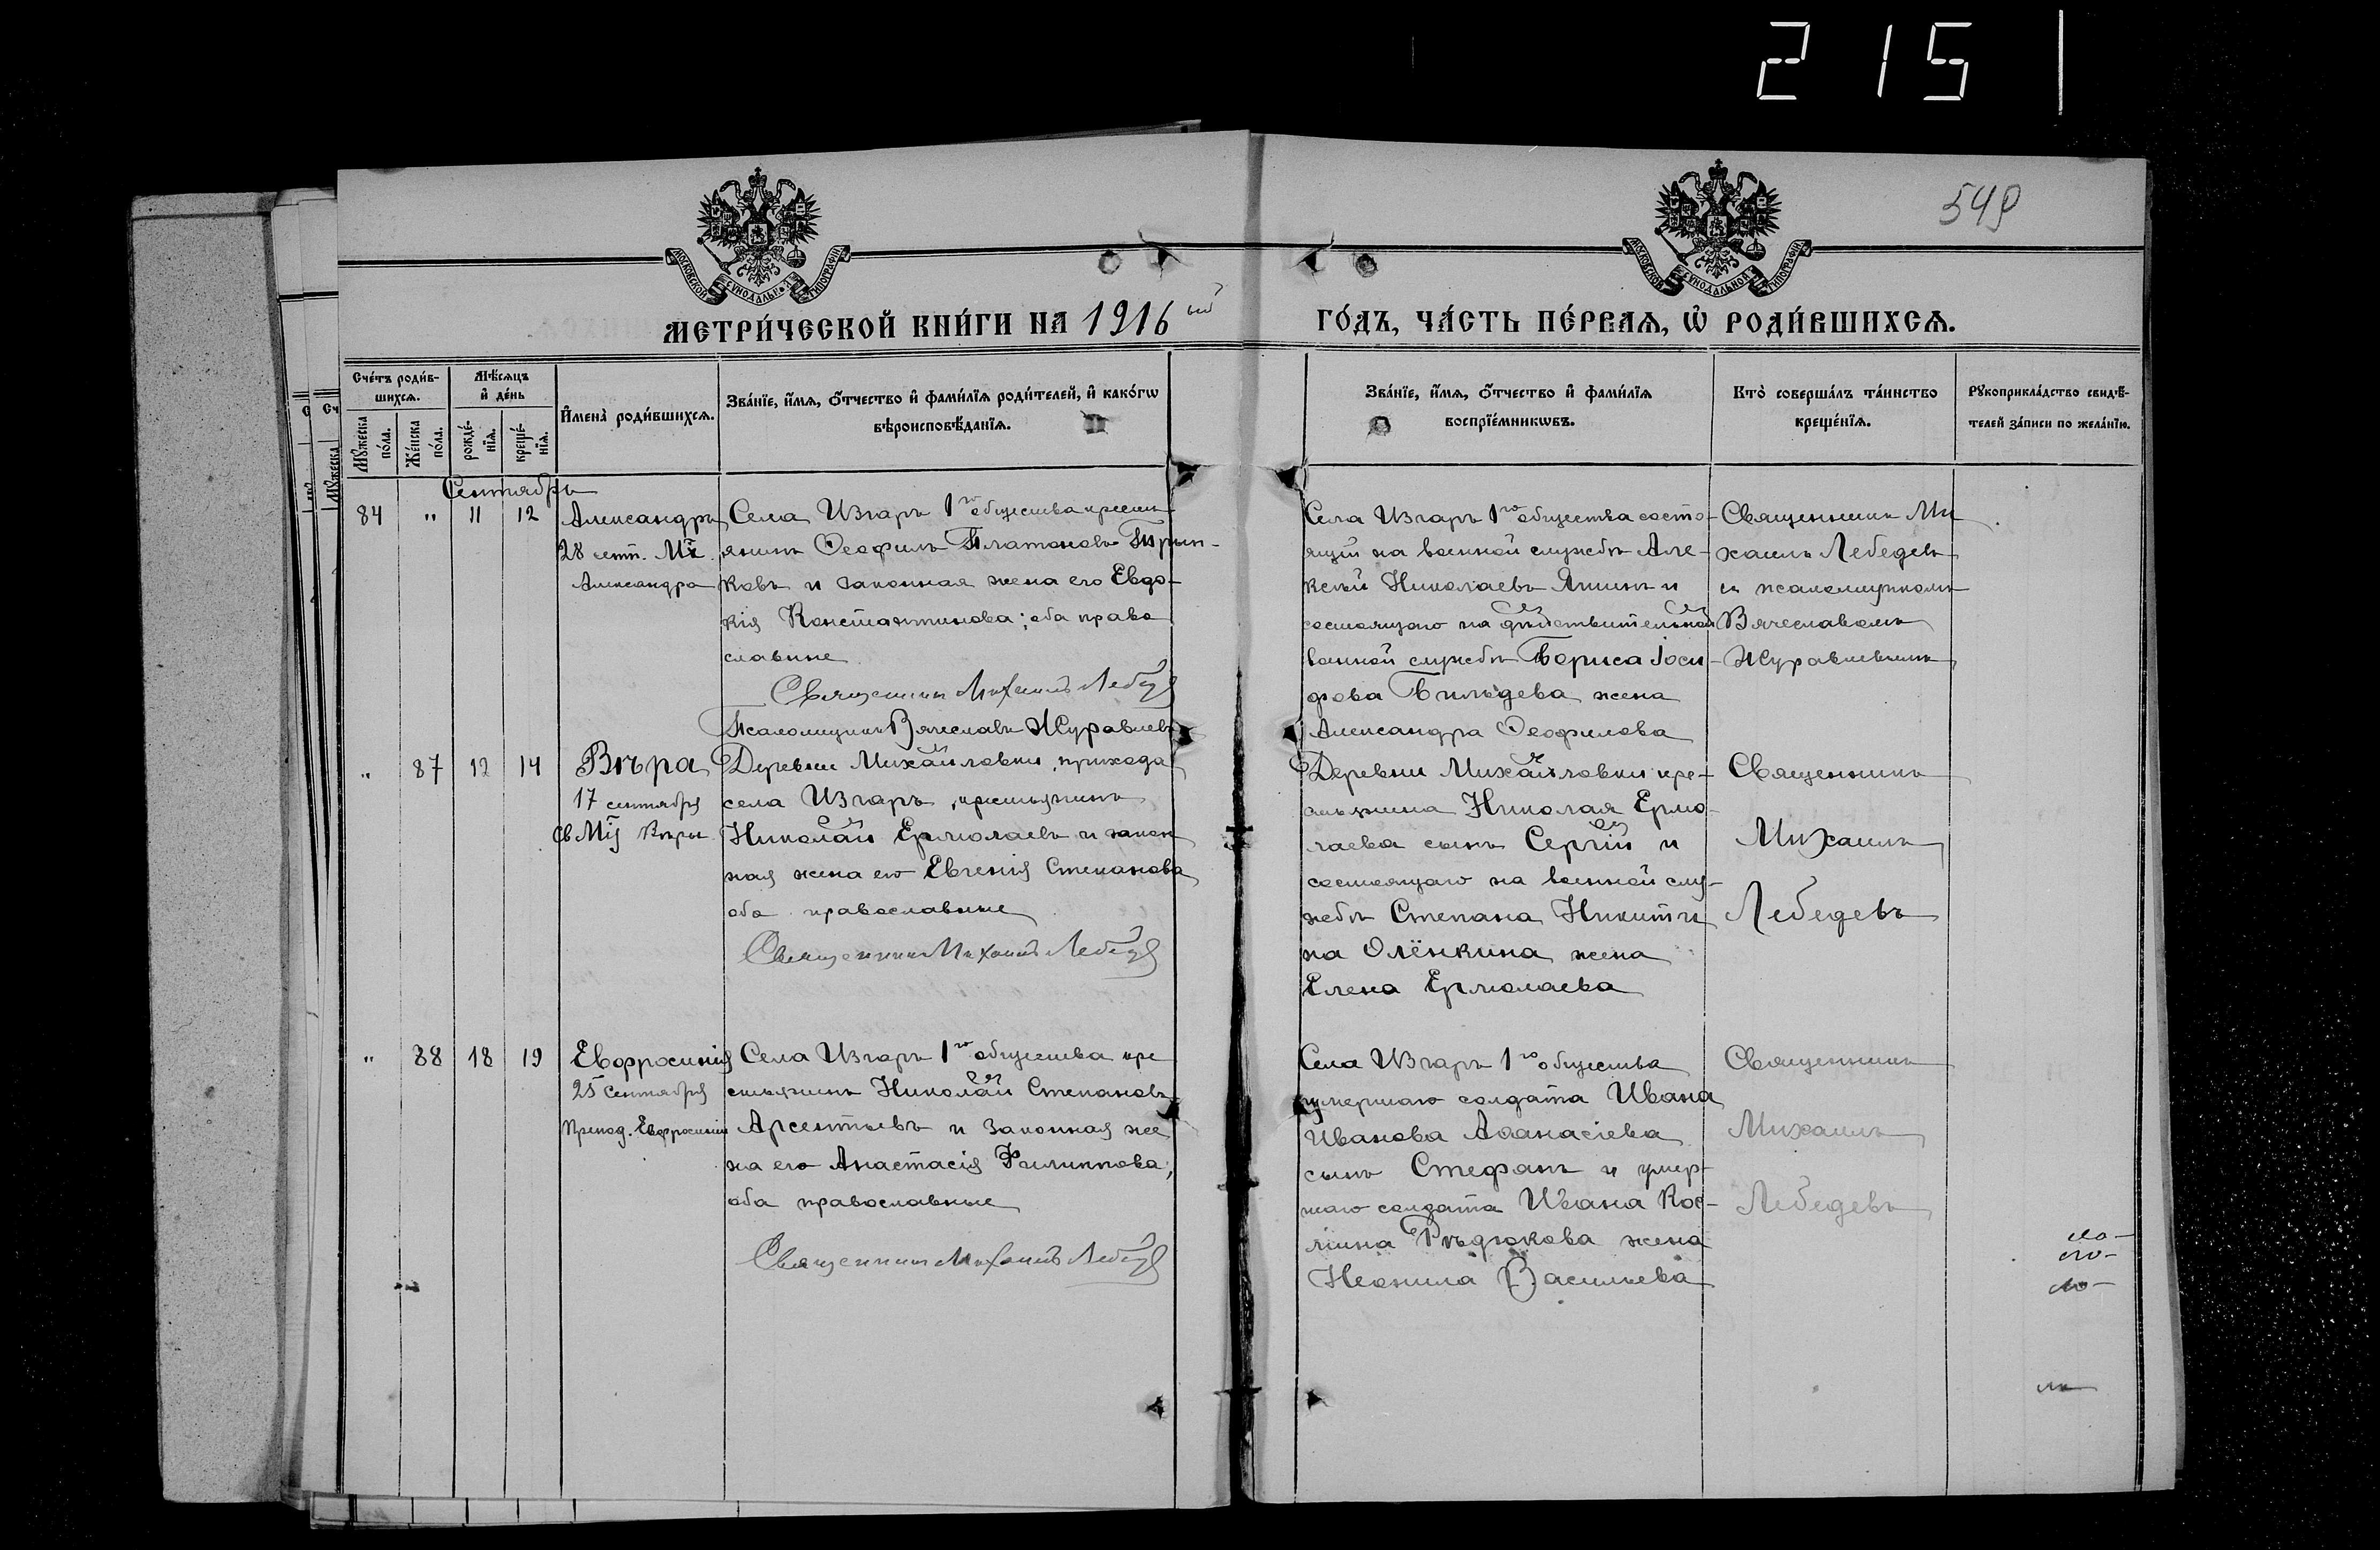 2151
549
МОСКОВСКОЙ СѴНОДАЛЬНОЙ ТИПОГРАФІИ
МОСКОВСКОЙ СѴНОДАЛЬНОЙ ТИПОГРАФІИ
МЕТРИ́ЧЕСКОЙ КНИ́ГИ НА 1916ый
ГО́ДЪ, ЧА́СТЬ ПЕ́РВАѦ, Ѡ РОДИ́ВШИХСѦ.
Сче́тъ роди́в-
шихсѧ.
Мꙋ́жеска по́ла.
Же́нска по́ла.
Мѣ́сѧцъ
и҆ де́нь
рожде́-
нїѧ.
креще́-
нїѧ.
И҆мена̀ роди́вшихсѧ.
Зва́нїе, и҆́мѧ, ѻ҆́тчество и҆ фами́лїѧ роди́телей, и҆ како́гѡ
вѣроисповѣ́данїѧ.
Зва́нїе, и҆́мѧ, ѻ҆́тчество и҆ фами́лїѧ
воспрїе́мникѡвъ.
Кто̀ соверша́лъ та́инство
креще́нїѧ.
Рꙋкоприкла́дство свидѣ́-
телей за́писи по жела́нїю.
Сентябрь
84 " 11 12
Александръ
28 сент. Мч.
Александра
Села Изгаръ 1го общества крестья-
янинъ Ѳеофилъ Платоновъ
ковъ и законная жена его Евдо-
кія Константинова; оба право
славные
Священникъ Михаилъ Лебедев
Псаломщикъ Вячеславъ Журавлевъ
Села Изгаръ 1го общества состо-
ящій на военной службѣ Але-
ксѣй Николаевъ Яшинъ и
состоящаго на дѣйствительной
военной службѣ Бориса Іоси-
фова жена
Александра Ѳеофилова
Священникъ Ми
хаилъ Лебедевъ
съ псаломщикомъ
Вячеславомъ
Журавлевымъ
" 87 12 14
Вѣра
17 сентября
св Мц Вѣры
Деревни Михайловки, прихода
села Изгаръ, крестьянинъ
Николай Ермолаевъ и закон
ная жена его Евгенія Степанова
оба православные
Священникъ Михаилъ Лебедев
Деревни Михайловки кре-
стьянина Николая Ермо-
лаева сынъ Сергій и
состоящаго на военной слу-
жбѣ Степана Никити
на Олёнкина жена
Елена Ермолаева
Священникъ
Михаилъ
Лебедевъ
" 88 18 19
Евфросинія
25 сентября
Препод. Евфросиніи
Села Изгаръ 1го общества кре
стьянинъ Николай Степановъ
Арсентьевъ и законная же
на его Анастасія Филиппова,
оба православные
Священникъ Михаилъ Лебедев
Села Изгаръ 1го общества
умершаго солдата Ивана
Иванова Аѳанасіева
сынъ Стефанъ и умер-
шаго солдата Ивана Кос-
Рѣдюкова жена
Неонила Васильева
Священникъ
Михаилъ
Лебедевъ